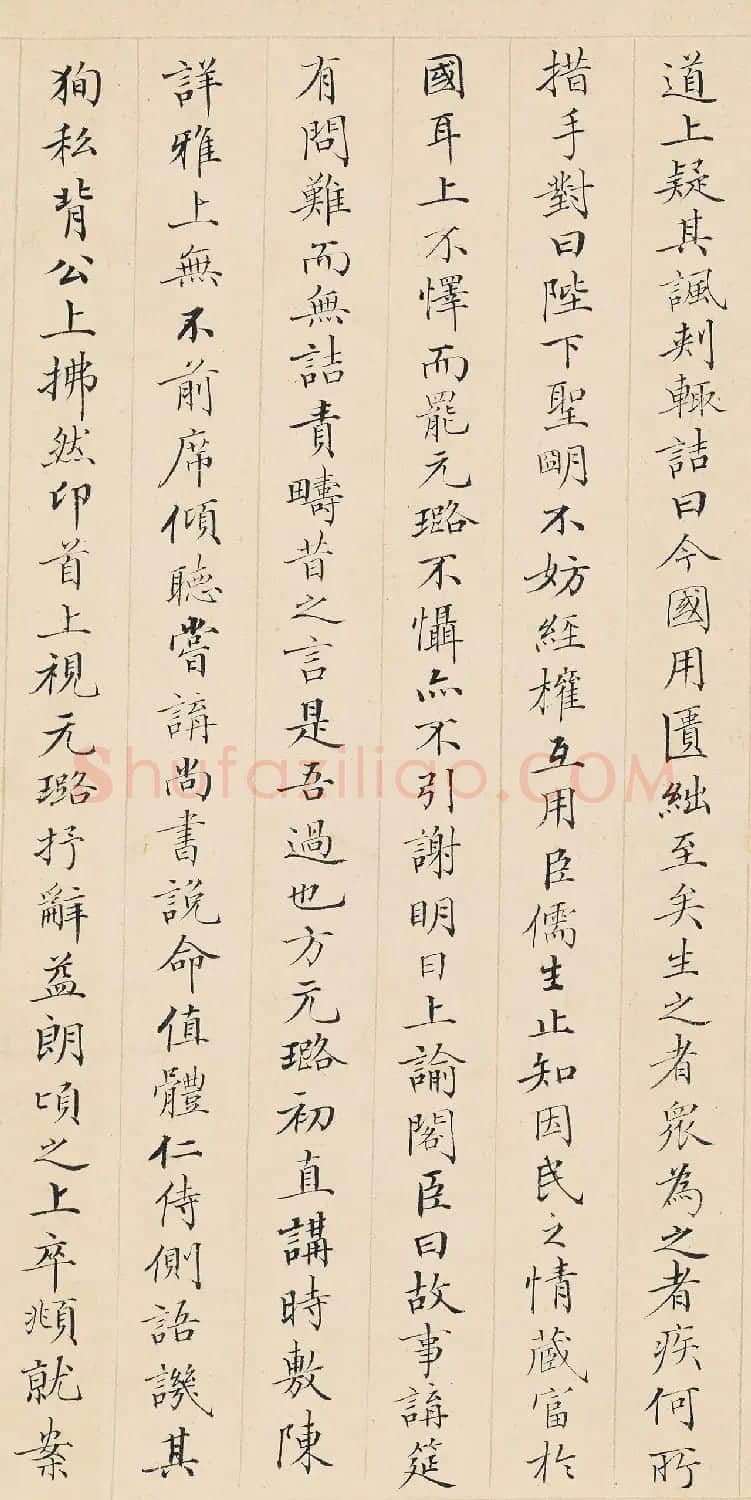 道上疑其諷刺輙詰曰今國用匱絀至矣生之者衆為之者疾何所
措手對曰陛下聖明不妨經權互用臣儒生止知因民之情藏富於
國耳上不懌而罷元璐不懾亦不引謝明日上諭閣臣曰故事講筵
有問難而無詰責疇昔之言是吾過也方元璐初直講時敷陳
詳雅上無不前席傾聽嘗講尚書說命值體仁侍側語譏其
狥私背公上拂然卬首上視元璐抒辭益朗頃之上卒頫就案
Shufaziliao.COM